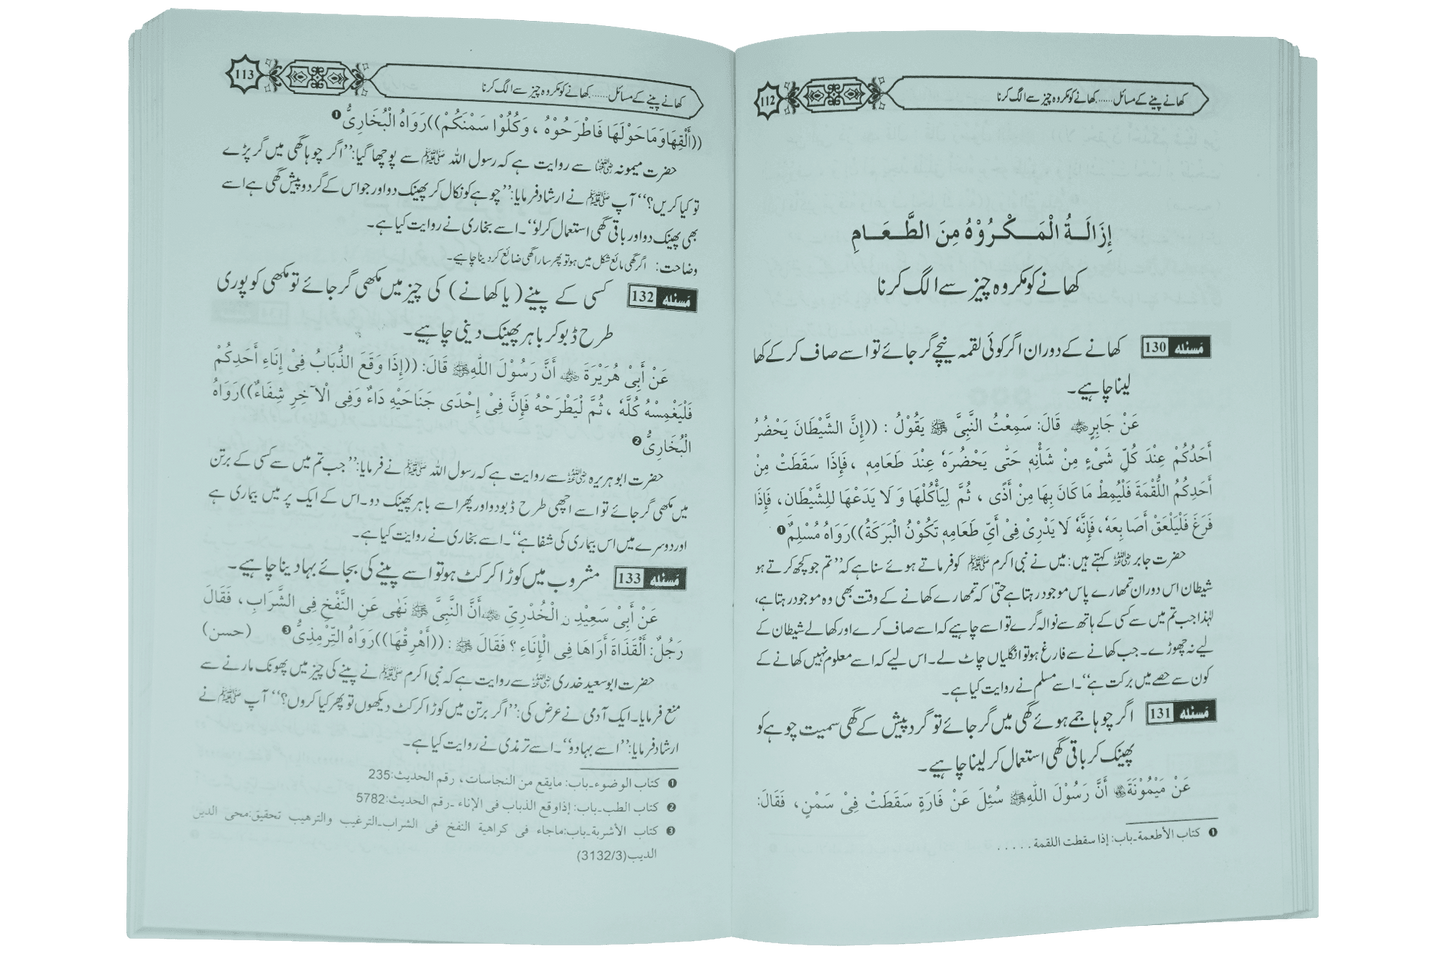 112
کھانے پینے کے مسائل......کھانے کو مکروہ چیز سے الگ کرنا
إِزَالَـةُ الْمَـكْـرُوْهِ مِنَ الطَّـعَـامِ
کھانے کو مکروہ چیز سے الگ کرنا
مَسئلہ 130 کھانے کے دوران اگر کوئی لقمہ نیچے گر جائے تو اسے صاف کر کے کھا
لینا چاہیے۔
عَنْ جَابِرٍ ؓ قَالَ: سَمِعْتُ النَّبِيَّ ﷺ يَقُوْلُ : ((إِنَّ الشَّيْطَانَ يَحْضُرُ
أَحَدَكُمْ عِنْدَ كُلِّ شَيْءٍ مِنْ شَأْنِهِ حَتَّى يَحْضُرَهُ عِنْدَ طَعَامِهِ ، فَإِذَا سَقَطَتْ مِنْ
أَحَدِكُمُ اللُّقْمَةُ فَلْيُمِطْ مَا كَانَ بِهَا مِنْ أَذًى ، ثُمَّ لِيَأْكُلْهَا وَ لَا يَدَعْهَا لِلشَّيْطَانِ، فَإِذَا
فَرَغَ فَلْيَلْعَقْ أَصَابِعَهُ، فَإِنَّهُ لَا يَدْرِيْ فِيْ أَيِّ طَعَامِهِ تَكُوْنُ الْبَرَكَةُ))رَوَاهُ مُسْلِمٌ ❶
حضرت جابر ؓ کہتے ہیں: میں نے نبی اکرم ﷺ کو فرماتے ہوئے سنا ہے کہ ’’تم جو کچھ کرتے ہو
شیطان اس دوران تمھارے پاس موجود رہتا ہے حتی کہ تمھارے کھانے کے وقت بھی وہ موجود رہتا ہے،
لہٰذا جب تم میں سے کسی کے ہاتھ سے نوالہ گرے تو اسے چاہیے کہ اسے صاف کرے اور کھا لے شیطان کے
لیے نہ چھوڑے۔ جب کھانے سے فارغ ہو تو انگلیاں چاٹ لے۔ اس لیے کہ اسے معلوم نہیں کھانے کے
کون سے حصے میں برکت ہے‘‘۔ اسے مسلم نے روایت کیا ہے۔
مَسئلہ 131 اگر چوہا جمے ہوئے گھی میں گر جائے تو گرد پیش کے گھی سمیت چوہے کو
پھینک کر باقی گھی استعمال کر لینا چاہیے۔
عَنْ مَيْمُوْنَةَ ؓ أَنَّ رَسُوْلَ اللهِ ﷺ سُئِلَ عَنْ فَارَةٍ سَقَطَتْ فِيْ سَمْنٍ ، فَقَالَ:
❶ كتاب الأطعمة۔باب: إذا سقطت اللقمة . . . . .
113
کھانے پینے کے مسائل......کھانے کو مکروہ چیز سے الگ کرنا
((أَلْقِهَا وَمَا حَوْلَهَا فَاطْرَحُوْهُ ، وَكُلُوْا سَمْنَكُمْ))رَوَاهُ الْبُخَارِيُّ ❶
حضرت میمونہ ؓ سے روایت ہے کہ رسول اللہ ﷺ سے پوچھا گیا: ’’اگر چوہا گھی میں گر پڑے
تو کیا کریں؟‘‘ آپ ﷺ نے ارشاد فرمایا: ’’چوہے کو نکال کر پھینک دو اور جو اس کے گرد و پیش گھی ہے اسے
بھی پھینک دو اور باقی گھی استعمال کر لو‘‘۔ اسے بخاری نے روایت کیا ہے۔
وضاحت: اگر گھی مائع شکل میں ہو تو پھر سارا گھی ضائع کر دینا چاہیے۔
مَسئلہ 132 کسی کے پینے (یا کھانے) کی چیز میں مکھی گر جائے تو مکھی کو پوری
طرح ڈبو کر باہر پھینک دینی چاہیے۔
عَنْ أَبِيْ هُرَيْرَةَ ؓ أَنَّ رَسُوْلَ اللهِ ﷺ قَالَ: ((إِذَا وَقَعَ الذُّبَابُ فِيْ إِنَاءِ أَحَدِكُمْ
فَلْيَغْمِسْهُ كُلَّهُ ، ثُمَّ لْيَطْرَحْهُ فَإِنَّ فِيْ إِحْدَى جَنَاحَيْهِ دَاءٌ وَفِي الْآخِرِ شِفَاءٌ))رَوَاهُ
الْبُخَارِيُّ ❷
حضرت ابو ہریرہ ؓ سے روایت ہے کہ رسول اللہ ﷺ نے فرمایا: ’’جب تم میں سے کسی کے برتن
میں مکھی گر جائے تو اسے اچھی طرح ڈبو دو اور پھر اسے باہر پھینک دو۔ اس کے ایک پر میں بیماری ہے
اور دوسرے میں اس بیماری کی شفا ہے‘‘۔ اسے بخاری نے روایت کیا ہے۔
مَسئلہ 133 مشروب میں کوڑا کرکٹ ہو تو اسے پینے کی بجائے بہا دینا چاہیے۔
عَنْ أَبِيْ سَعِيْدِ نِ الْخُدْرِيِّ ؓ أَنَّ النَّبِيَّ ﷺ نَهَى عَنِ النَّفْخِ فِي الشَّرَابِ ، فَقَالَ
رَجُلٌ: أَلْقَذَاةَ أَرَاهَا فِي الْإِنَاءِ ؟ فَقَالَ ﷺ : ((أَهْرِقْهَا))رَوَاهُ التِّرْمِذِيُّ ❸ (حسن)
حضرت ابو سعید خدری ؓ سے روایت ہے کہ نبی اکرم ﷺ نے پینے کی چیز میں پھونک مارنے سے
منع فرمایا۔ ایک آدمی نے عرض کی: ’’اگر برتن میں کوڑا کرکٹ دیکھوں تو پھر کیا کروں؟‘‘ آپ ﷺ نے
ارشاد فرمایا: ’’اسے بہا دو‘‘۔ اسے ترمذی نے روایت کیا ہے۔
❶ كتاب الوضوء۔باب: مايقع من النجاسات، رقم الحديث:235
❷ كتاب الطب۔باب: إذاوقع الذباب فى الإناء ۔رقم الحديث:5782
❸ كتاب الأشربة۔باب:ماجاء فى كراهية النفخ فى الشراب۔الترغيب والترهيب تحقيق:محى الدين
الديب(3132/3)